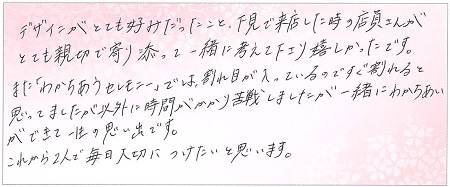 デザインがとても好みだったこと、下見で来店した時の店員さんが
とても親切で寄り添って一緒に考えて下さり嬉しかったです。
また「わかちあうセレモニー」では、割れ目が入っているのですぐ割れると
思ってましたが以外に時間がかかり苦戦しましたが一緒にわかちあい
ができて一生の思い出です。
これから2人で毎日大切につけたいと思います。